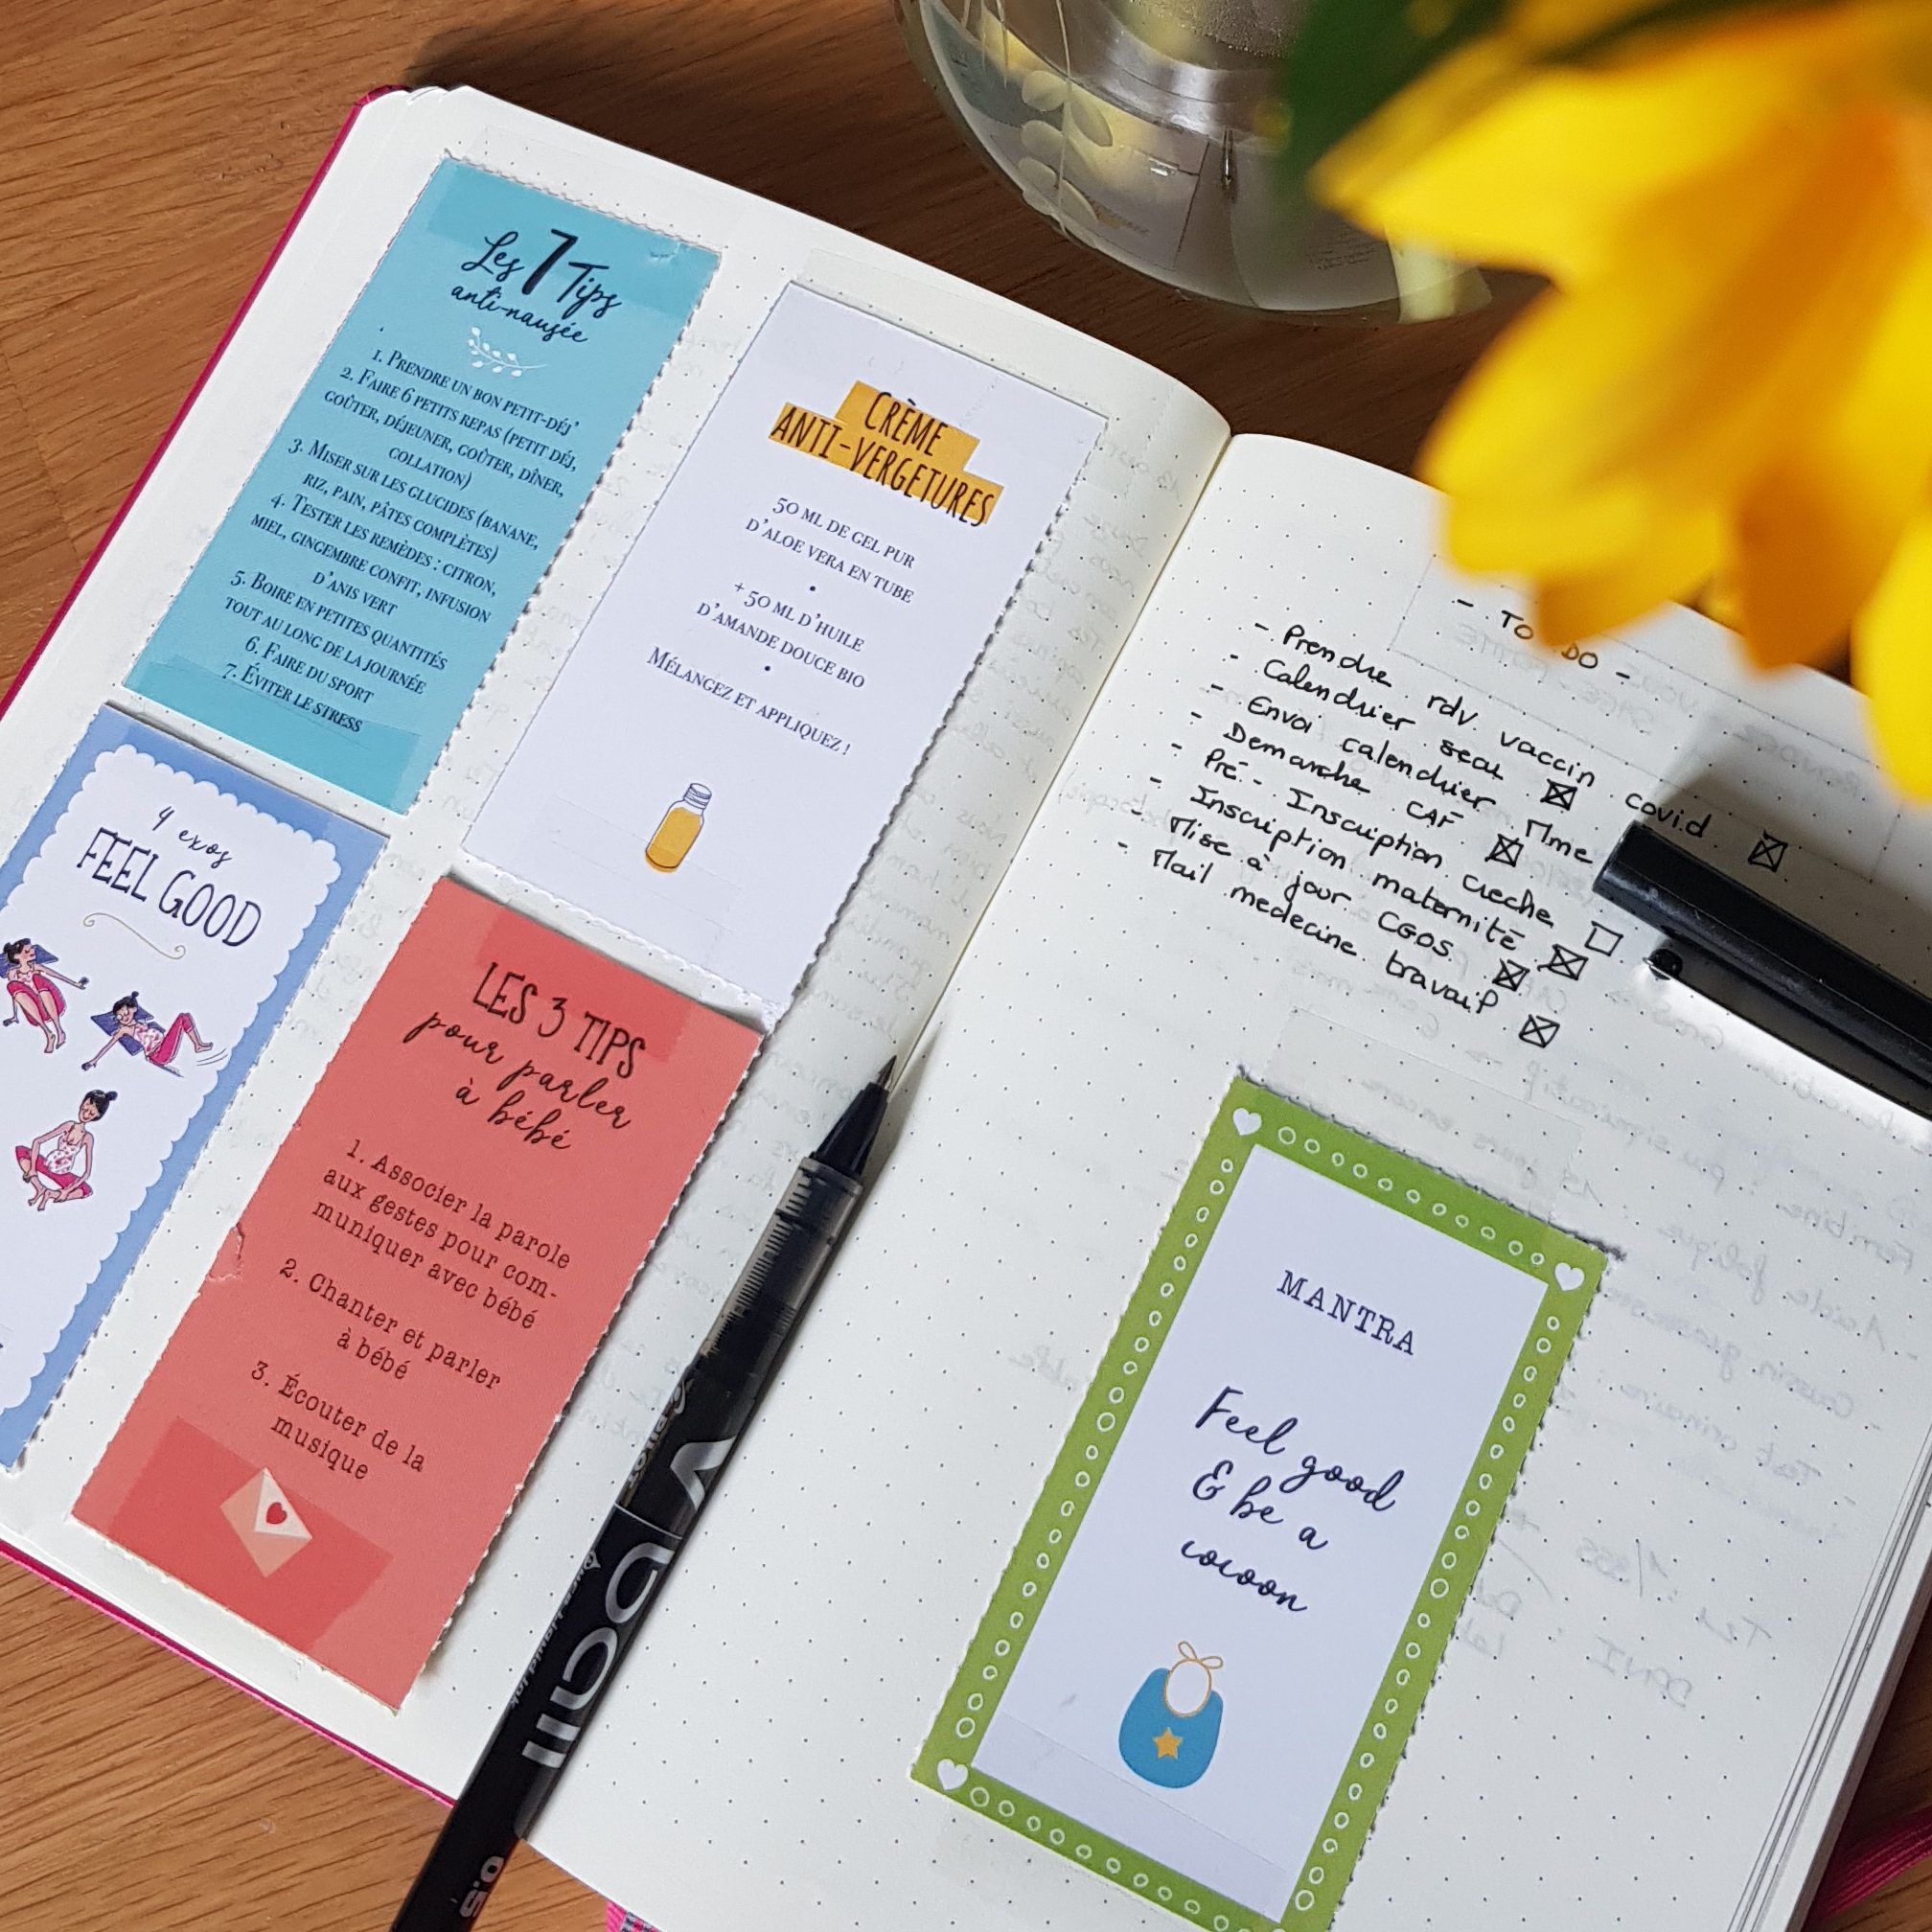 Les 7 Tips
anti-nausée
1. Prendre un bon petit-déj'
2. Faire 6 petits repas (petit déj,
goûter, déjeuner, goûter, dîner,
collation)
3. Miser sur les glucides (banane,
riz, pain, pâtes complètes)
4. Tester les remèdes : citron,
miel, gingembre confit, infusion
d'anis vert
5. Boire en petites quantités
tout au long de la journée
6. Faire du sport
7. Éviter le stress
CRÈME
ANTI-VERGETURES
50 ml de gel pur
d'aloe vera en tube
•
+ 50 ml d'huile
d'amande douce bio
•
Mélangez et appliquez !
4 exos
FEEL GOOD
LES 3 TIPS
pour parler
à bébé
1. Associer la parole
aux gestes pour com-
muniquer avec bébé
2. Chanter et parler
à bébé
3. Écouter de la
musique
- TO DO -
- Prendre rdv vaccin covid
- Calendrier
- Envoi calendrier Mme
- Demarche CAF
- Pré-Inscription creche
- Inscription maternité
- Mise à jour CGOS
- Mail medecine travail
MANTRA
Feel good
& be a
cocoon
PILOT
V Ball
Pure Liquid Ink
0.5